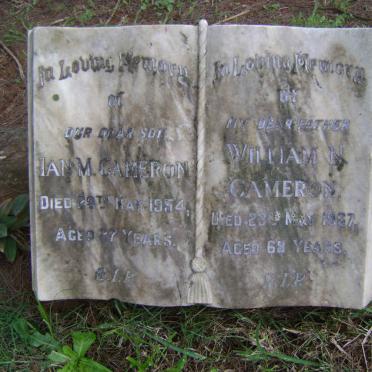 In Loving Memory
of
OUR DEAR SON
IAN M. CAMERON
DIED MAY 1954,
AGED YEARS.
R.I.P.
In Loving Memory
OF
MY DEAR FATHER
WILLIAM
CAMERON
DIED 23RD MAY
AGED YEARS.
R.I.P.